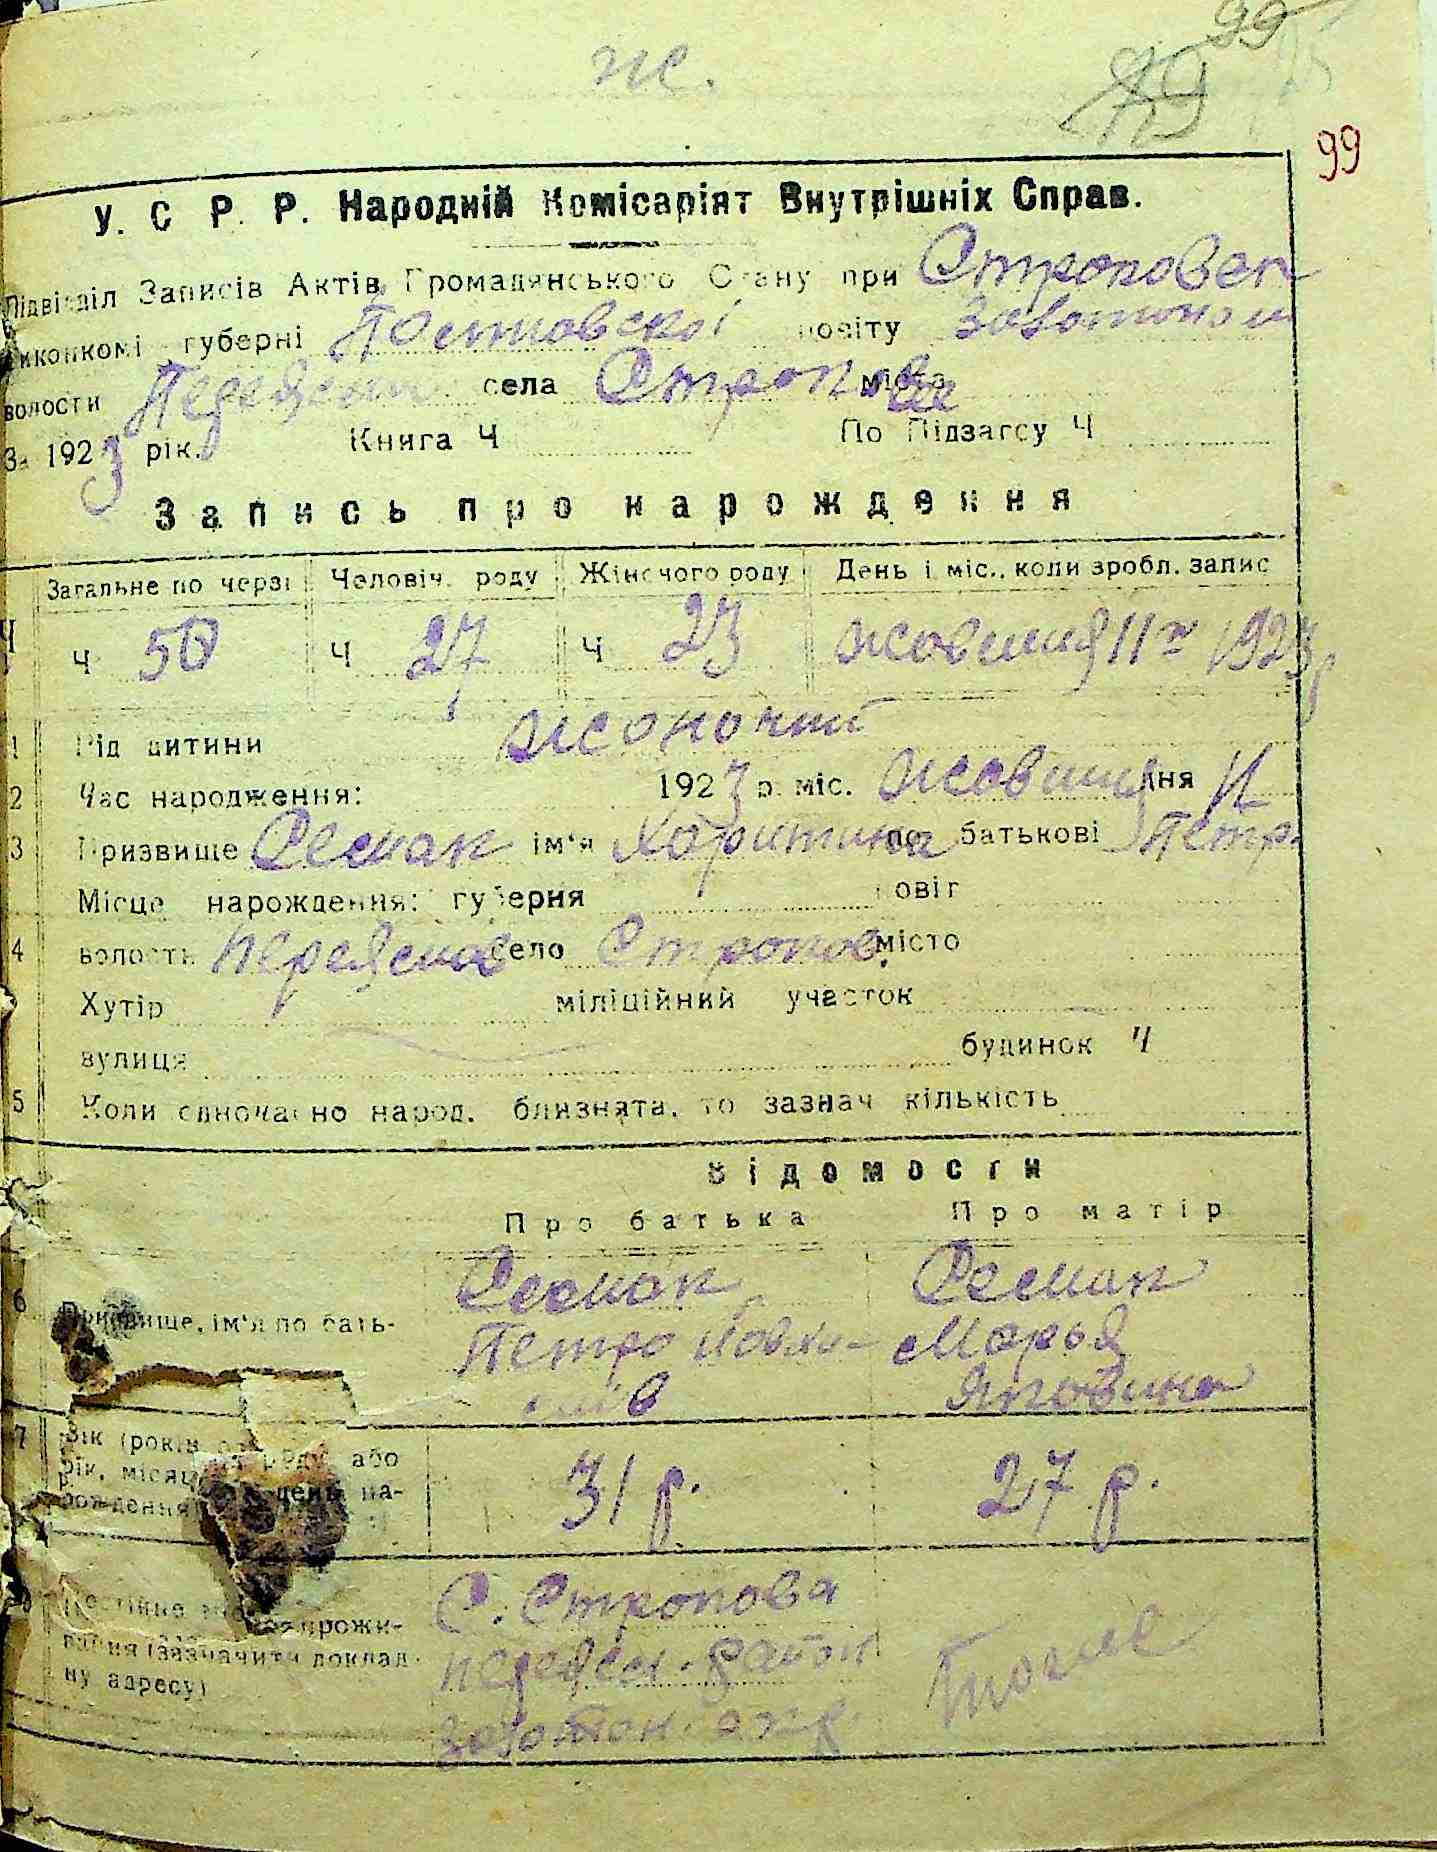 ж.
99
99
У. С. Р. Р. Народній Комісаріят Внутрішніх Справ.
Підвідділ Записів Актів Громадянського Стану при Строковск
виконкомі губерні Полтавскої повіту Золотонош
волости Переяслав села Строкова міста
За 1923 рік. Книга Ч По Підзагсу Ч
Запись про нарождення
Загальне по черзі Человіч. роду Жіночого роду День і міс., коли зробл. запис
Ч 50 Ч 27 Ч 23 жовтня 11го 1923 р
1 Рід дитини жоночий
2 Час народження: 1923 р. міс. жовтня дня 11
3 Призвище Сесмак ім'я Харитина по батькові Петр.
Місце нарождення: губерня повіт
4 волость Переяслов село Строков. місто
Хутір міліційний участок
вулиця будинок Ч
5 Коли одночасно народ. близнята, то зазнач кількість
Відомости
Про батька Про матір
6 Призвище, ім'я по бать- Сесмак Сесмак
Петро Марья
Яковина
7 Вік (років або 31 р. 27 р.
рік, місяць день на-
рождення)
Постійне прожи- С. Строкова
вання (зазначити доклад- переясл. район Тоже
ну адресу) золотон. окр.